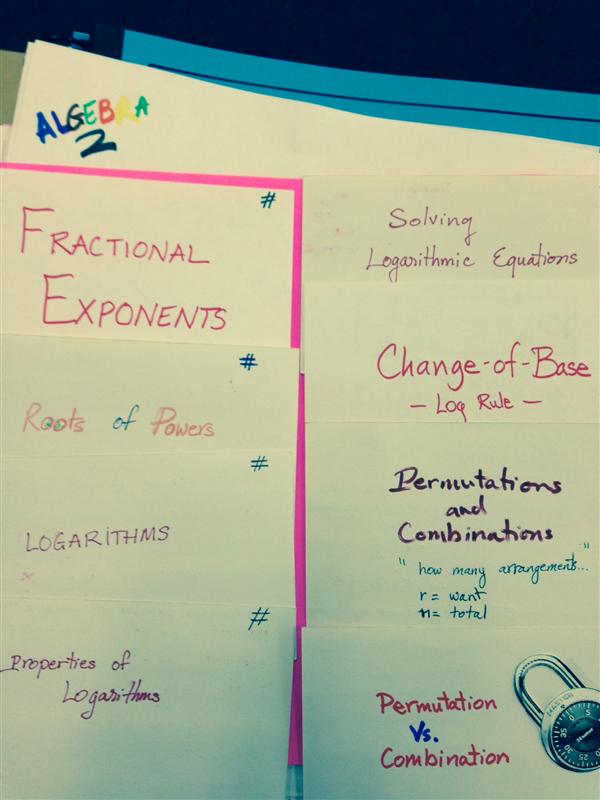 ALGEBRA
2
#
FRACTIONAL
EXPONENTS
#
Roots of Powers
#
LOGARITHMS
#
Properties of
Logarithms
Solving
Logarithmic Equations
Change-of-Base
— Log Rule —
Permutations
and
Combinations
"how many arrangements..."
r = want
n = total
Permutation
Vs.
Combination
0
5
35
30
25